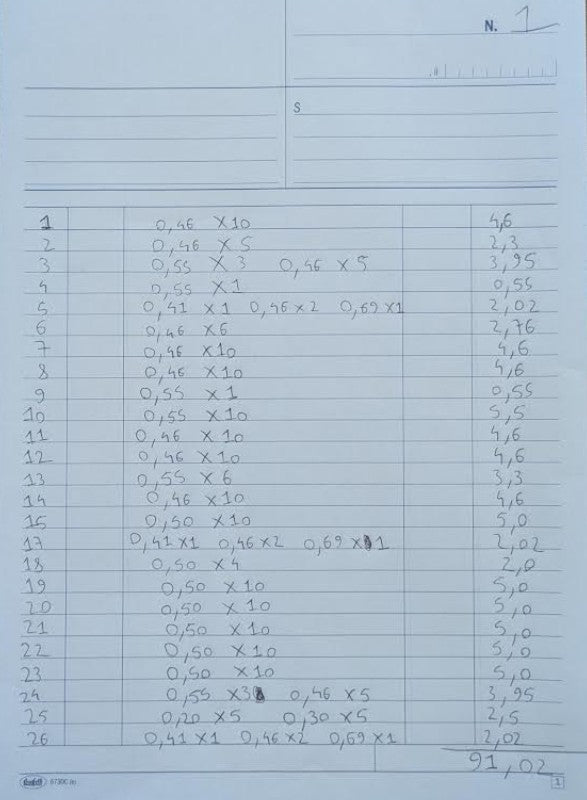 N. 1
S
1 0,46 X10 4,6
2 0,46 X5 2,3
3 0,55 X3 0,46 X5 3,95
4 0,55 X1 0,55
5 0,41 X1 0,46X2 0,69X1 2,02
6 0,46 X6 2,76
7 0,46 X10 4,6
8 0,46 X10 4,6
9 0,55 X1 0,55
10 0,55 X10 5,5
11 0,46 X10 4,6
12 0,46 X10 4,6
13 0,55 X6 3,3
14 0,46 X10 4,6
15 0,50 X10 5,0
17 0,41X1 0,46X2 0,69X1 2,02
18 0,50 X4 2,0
19 0,50 X10 5,0
20 0,50 X10 5,0
21 0,50 X10 5,0
22 0,50 X10 5,0
23 0,50 X10 5,0
24 0,55 X3 0,46 X5 3,95
25 0,20 X5 0,30 X5 2,5
26 0,41X1 0,46X2 0,69X1 2,02
91,02
1